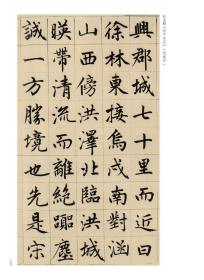 興郡城七十里而近曰
徐林東接烏戍南對涵
山西傍洪澤北臨洪城
映帶清流而離絶躢塵
誠一方勝境也先是宋